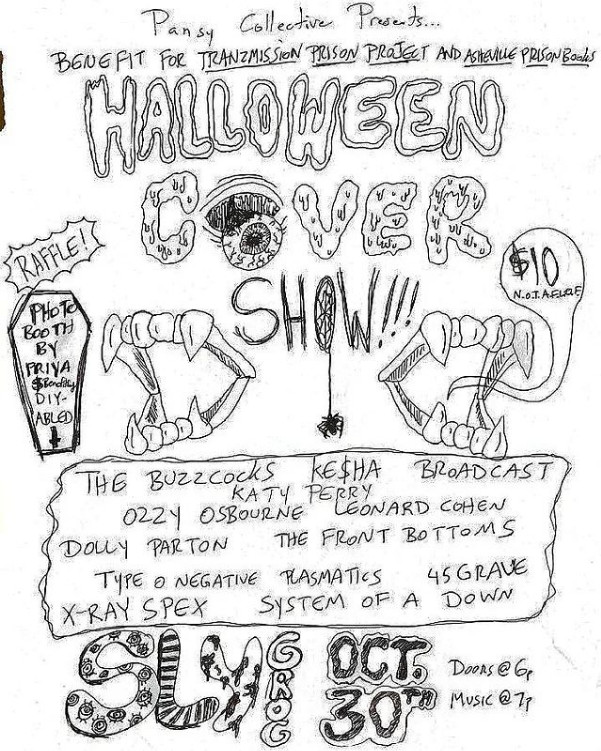 Pansy Collective Presents...
BENEFIT FOR TRANZMISSION PRISON PROJECT AND ASHEVILLE PRISON BOOKS
HALLOWEEN
COVER
SHOW!!!
RAFFLE!
$10
N.O.T.A.F.L.O.F
PHOTO
BOOTH
BY
PRIYA
DIY-
ABLED
THE BUZZCOCKS KE$HA BROADCAST
KATY PERRY
OZZY OSBOURNE LEONARD COHEN
DOLLY PARTON THE FRONT BOTTOMS
TYPE O NEGATIVE PLASMATICS 45 GRAVE
X-RAY SPEX SYSTEM OF A DOWN
SLY GROG
OCT.
30TH
DOORS @ 6p
MUSIC @ 7p